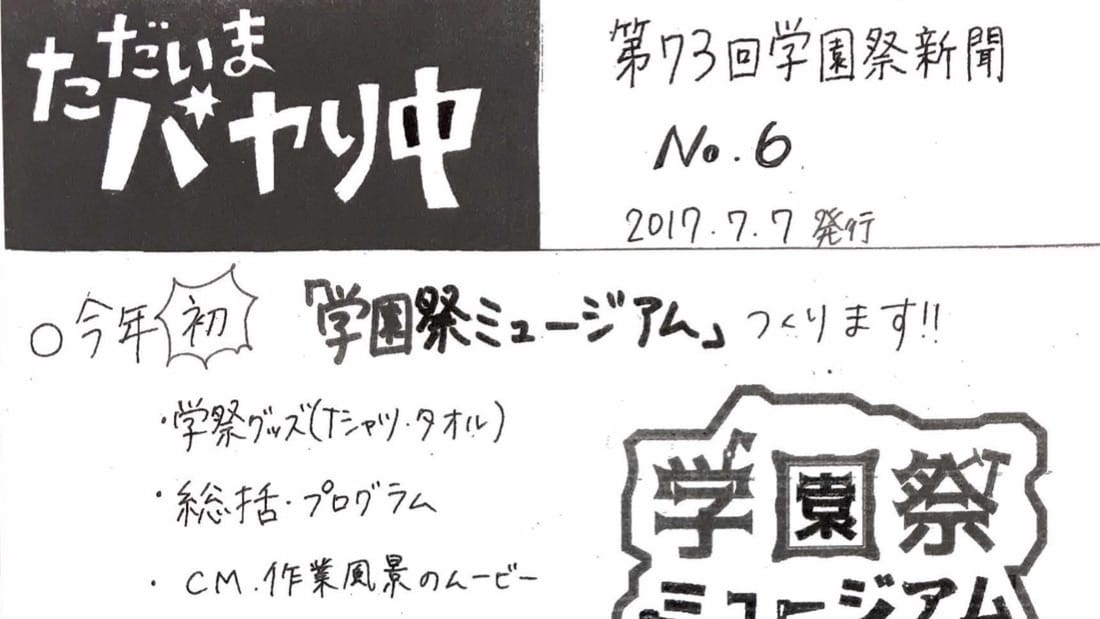 ただいま
ハヤり中
第73回学園祭新聞
No.6
2017.7.7 発行
○今年初「学園祭ミュージアム」つくります!!
・学祭グッズ(Tシャツ・タオル)
・総括・プログラム
・CM.作業風景のムービー
学園祭
ミュージアム